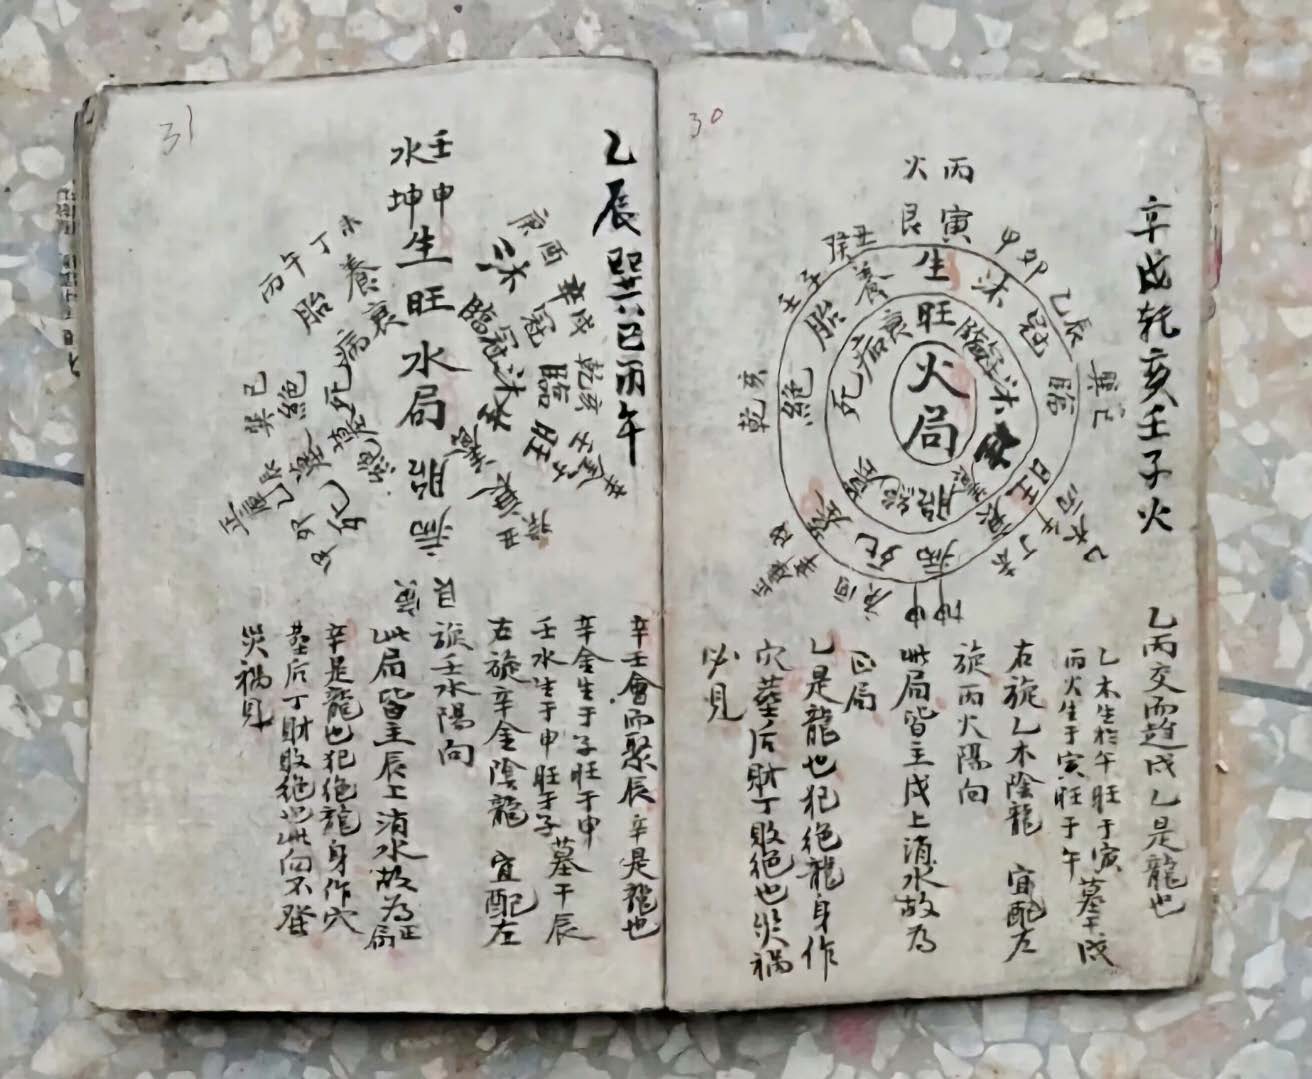 30
辛戌乾亥壬子火
丙寅
火艮
甲卯
乙辰
巽巳
丁未
坤申
庚酉
辛戌
乾亥
壬子
癸丑
生
沐
冠
臨
旺
衰
病
死
墓
絕
胎
養
旺
臨
冠
沐
養
胎
絕
墓
死
病
衰
火局
乙丙交而趨戌乙是龍也
乙木生於午旺于寅
丙火生于寅旺于午
墓于戌
右旋乙木陰龍 宜配左
旋丙火陽向
此局皆主戌上消水故为
正局
乙是龍也犯绝龍身作
穴墓后财丁敗绝也災禍
必見
31
乙辰巽巳丙午
壬申
水坤
庚酉
辛戌
乾亥
壬子
癸丑
巽巳
丙午
丁未
生
沐
冠
臨
旺
衰
病
死
墓
絕
胎
養
旺
臨
冠
沐
胎
死
病
衰
水局
辛壬會而聚辰辛是龍也
辛金生于子旺于申
壬水生于申旺于子
墓于辰
右旋辛金陰龍 宜配左
旋壬水陽向
此局皆主辰上消水故为正局
辛是龍也犯绝龍身作穴
墓后丁财敗绝也此向不發
災禍見